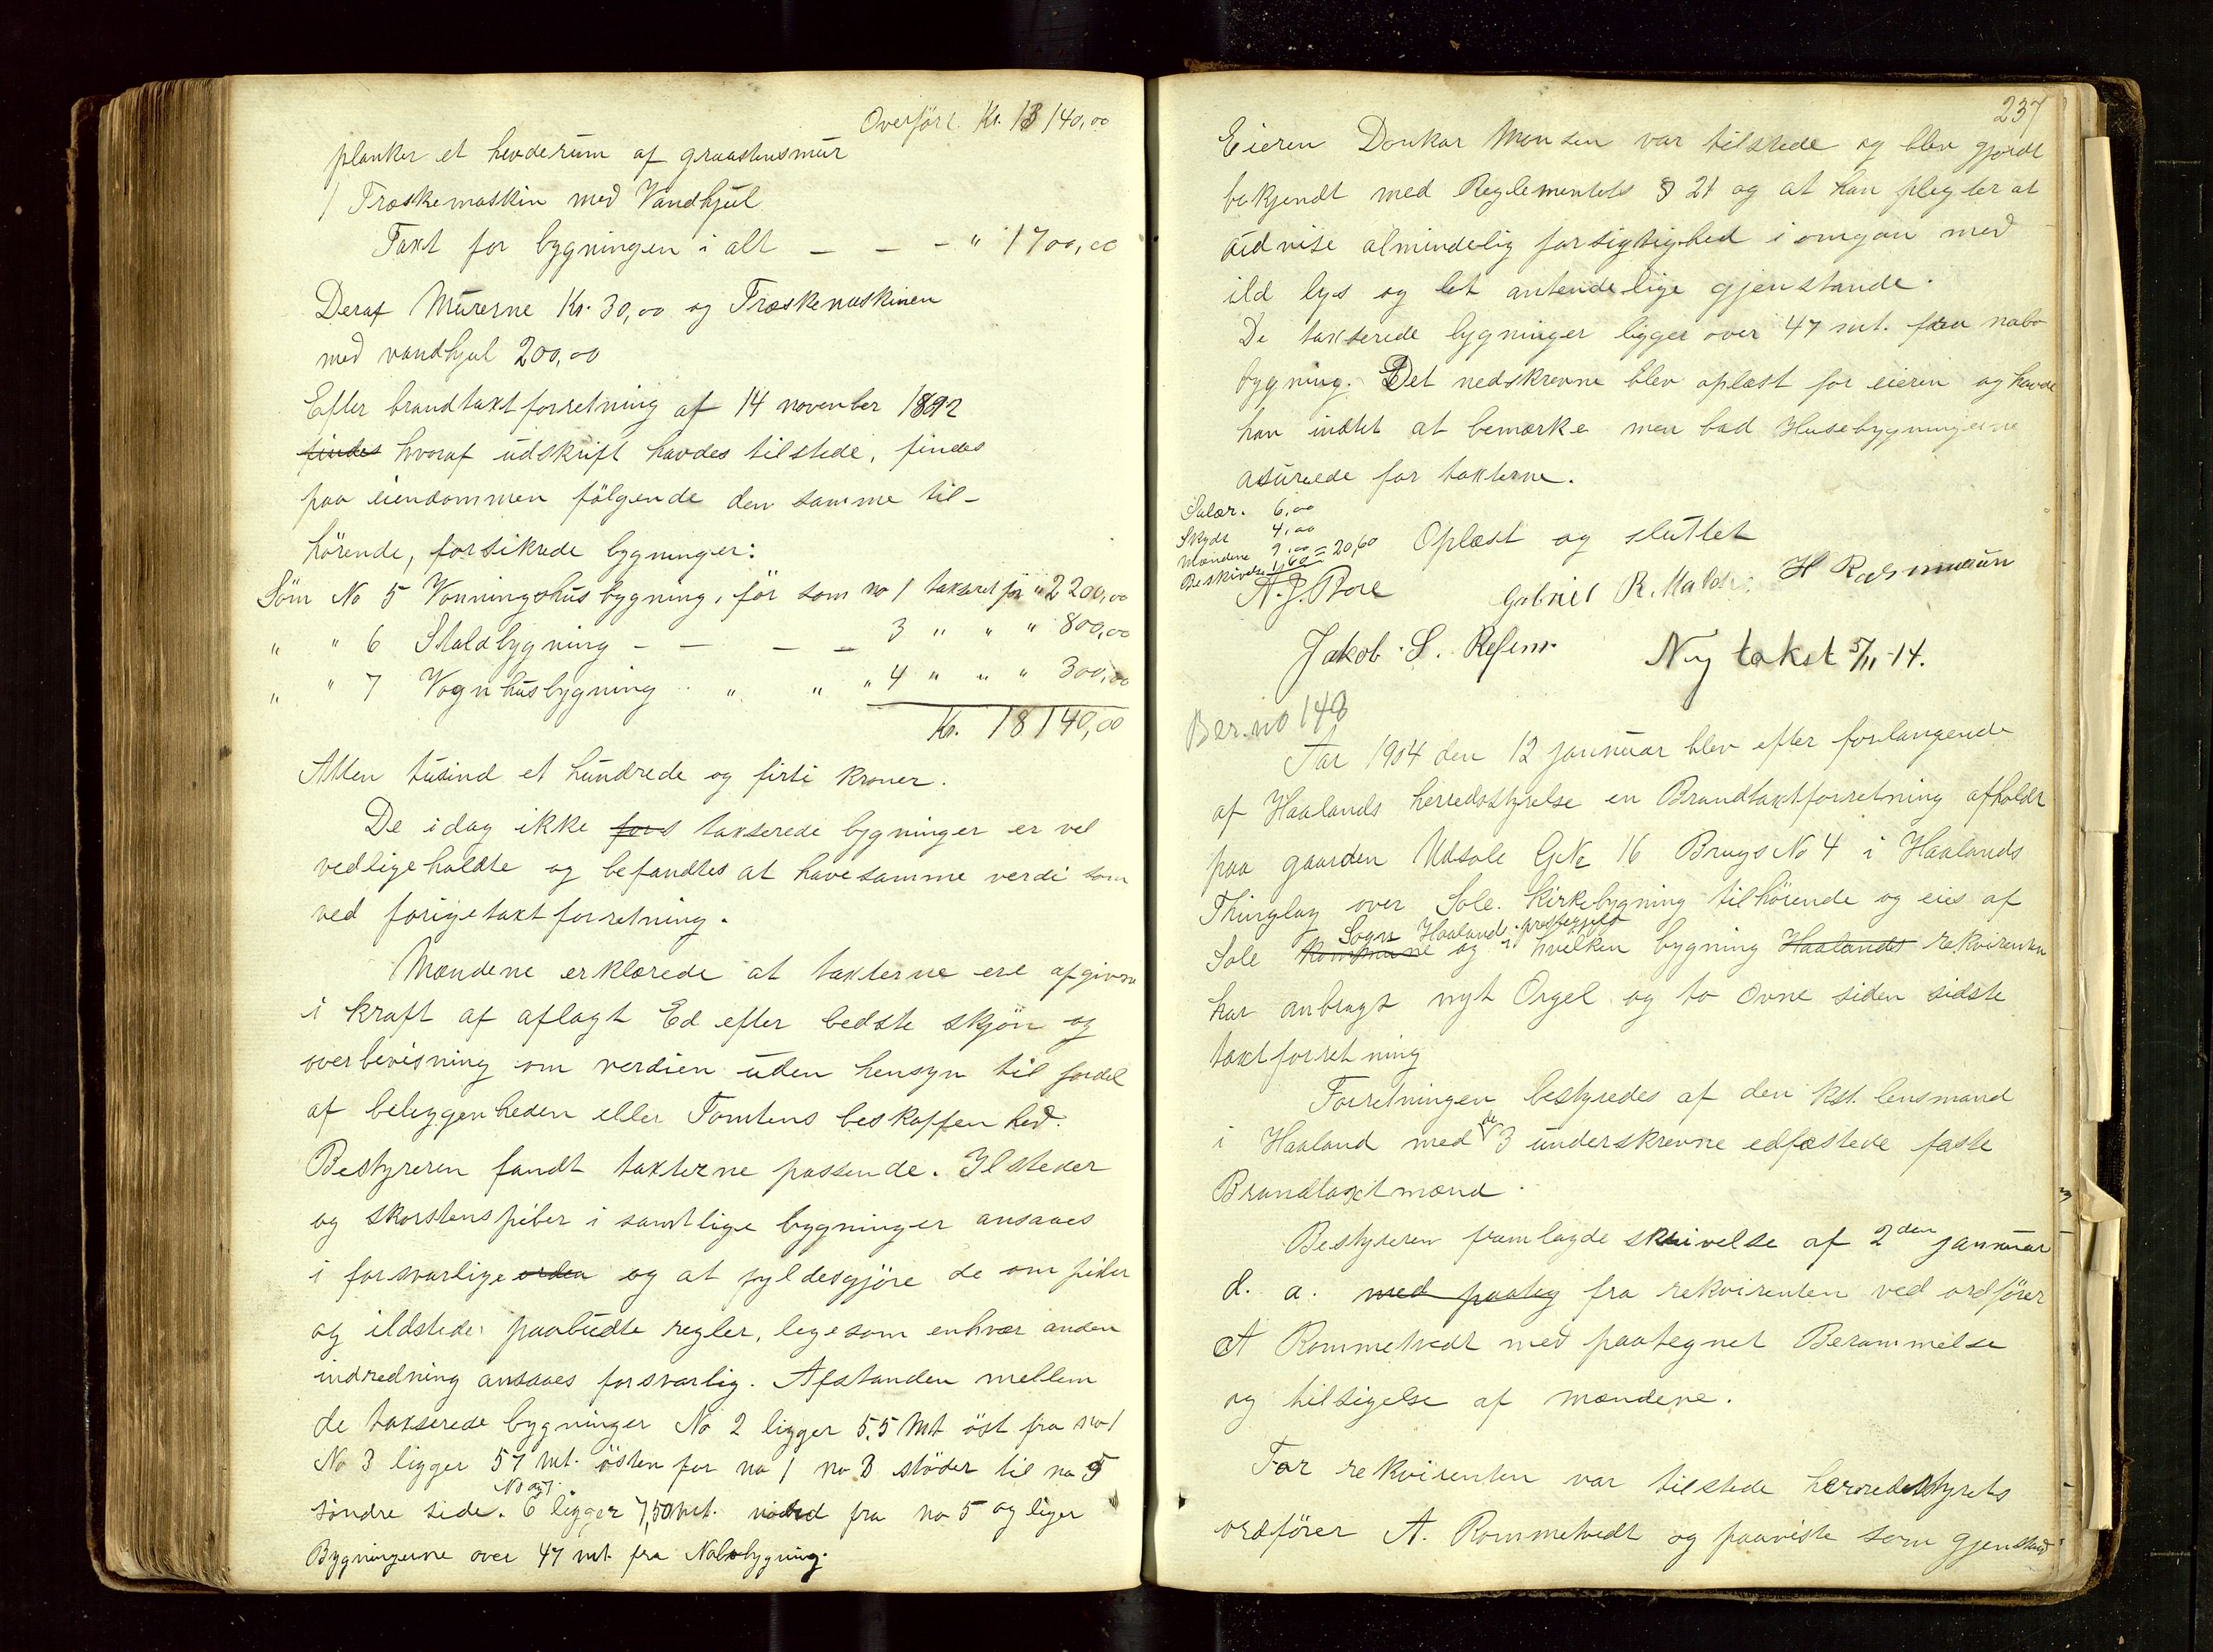 Overført. Kr. 13 140,00
planker et hevderum af graastensmur
1 Træskemaskin med Vandhjul
Taxt for bygningen i alt — — - " 1700,00
Deraf Murerne Kr. 30,00 og Træskemaskinen
med vandhjul 200,00
Efter brandtaxtforretning af 14 november 1892
findes hvoraf udskrift havdes tilstede, findes
paa eiendommen følgende den samme til-
hørende, forsikrede bygninger:
Som No 5 Vonningshusbygning, før som no 1 takseret for " 2200,00
" " 6 Staldbygning - — — — 3 " " " 800,00
" " 7 Vognhusbygning " " " 4 " " " 300,00
Kr. 18140,00
Atten tusind et hundrede og firti kroner.
De idag ikke fors takserede bygninger er vel
vedligeholdte og befandtes at have samme verdi som
ved forige taxtforretning.
Mændene erklærede at taxterne ere afgivne
i kraft af aflagt Ed efter bedste skjøn og
overbevisning om verdien uden hensyn til fordel
af beliggenheden eller Tomtens beskaffenhed.
Bestyreren fandt taxterne passende. Ilsteder
og skorstenspiber i samtlige bygninger ansaaes
i forsvarlige orden og at fyldesgjøre de om piber
og ildsteder paabudte regler, ligesom enhver anden
indredning ansaaes forsvarlig. Afstanden mellem
de takserede bygninger No 2 ligger 5,5 Mt øst fra no 1
No 3 ligger 57 mt. østen for no 1 no 3 støder til no 5
No og 7
søndre side. 6 ligger 7,50 mt. nord fra no 5 og liger
Bygningerne over 47 mt. fra Nabobygning.
237
Eieren Donkar Monsen var tilstede og blev gjordt
bekjendt med Reglementets § 21 og at han pligter at
udvise almindelig forsigtighed i omgan med
ild lys og let antendelige gjenstande.
De takserede bygninger ligger over 47 mt. fra nabo
bygning. Det nedskrevne blev oplæst for eieren og havde
han indtet at bemærke men bad Husebygningerne
asurede for taxterne.
Salær. 6,00
Skyds 4,00
Mændene 9,00 = 20,60
Beskrivelse 1,60
Oplæst og sluttet
A. J. Bore Gabriel R. Malde. H Rasmussen
Jakob S. Refsnes Ny takst 5/11-14.
Ber. no 148
Aar 1904 den 12 januar blev efter forlangende
af Haalands herredsstyrelse en Brandtaxtforretning afholdt
paa gaarden Udsole GNo 16 Brugs No 4 i Haalands
Thinglag over Sole. Kirkebygning tilhørende og eies af
Sogn Haalands prestegjeld
Sole kommune og i hvelken bygning Haalands rekvirenten
har anbragt nyt Orgel og to ovne siden sidste
taxtforretning
Forretningen bestyredes af den kst. lensmand
i Haaland med de 3 underskrevne edfæstede faste
Brandtaxtmænd.
Bestyreren fremlagde skrivelse af 2den januar
d. a. med paateg fra rekvirenten ved ordfører
A Rommetvedt med paategnet Berammelse
og tilsigelse af mændene.
For rekvirenten var tilstede herredsstyrets
ordfører A. Rommetvedt og paaviste som gjenstand